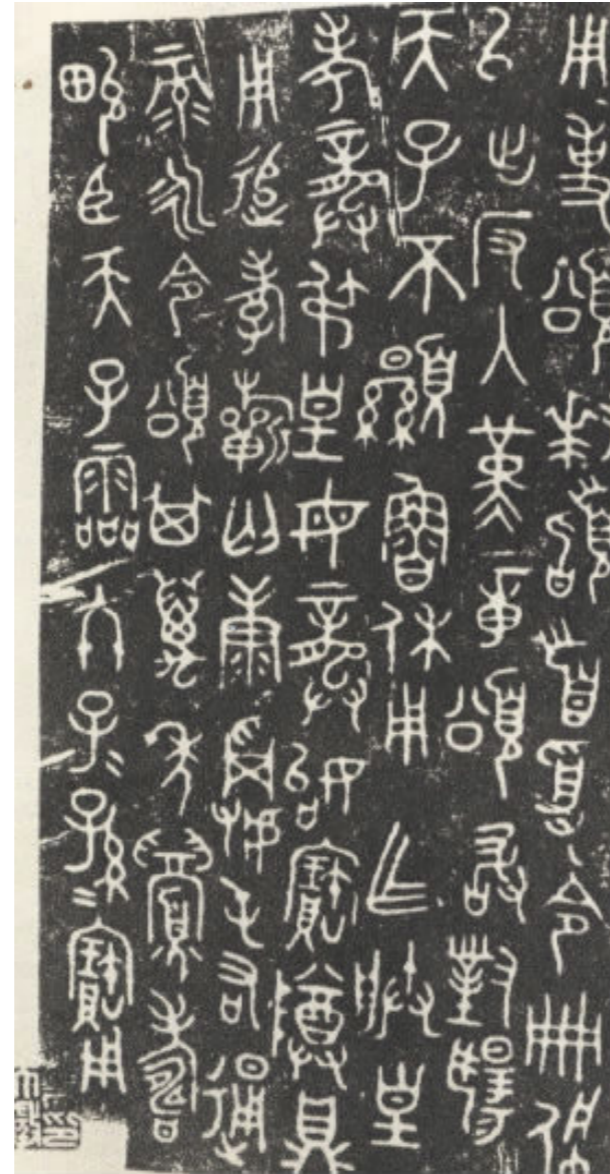 用事頌拜䭫首受令冊佩
㠯出反入堇章頌敢對揚
天子不顯魯休用乍朕皇
考龏弔皇母龏姒寶尊鼎
用追孝祈匄康屯右通
彔永令頌其萬年眉壽
畯臣天子霝冬子=孫=寶用